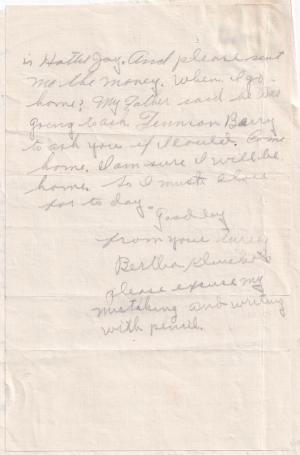 is Hattie Jay. And please sent
me the money. When I go
home? My Father said he was
going to ask Fennian Barry
to ask you if I could. Come
home. I am sure I will be
home. So I must close
for to day "Good by
from your
Bertha
please excuse my
mistaking and writing
with pencil.